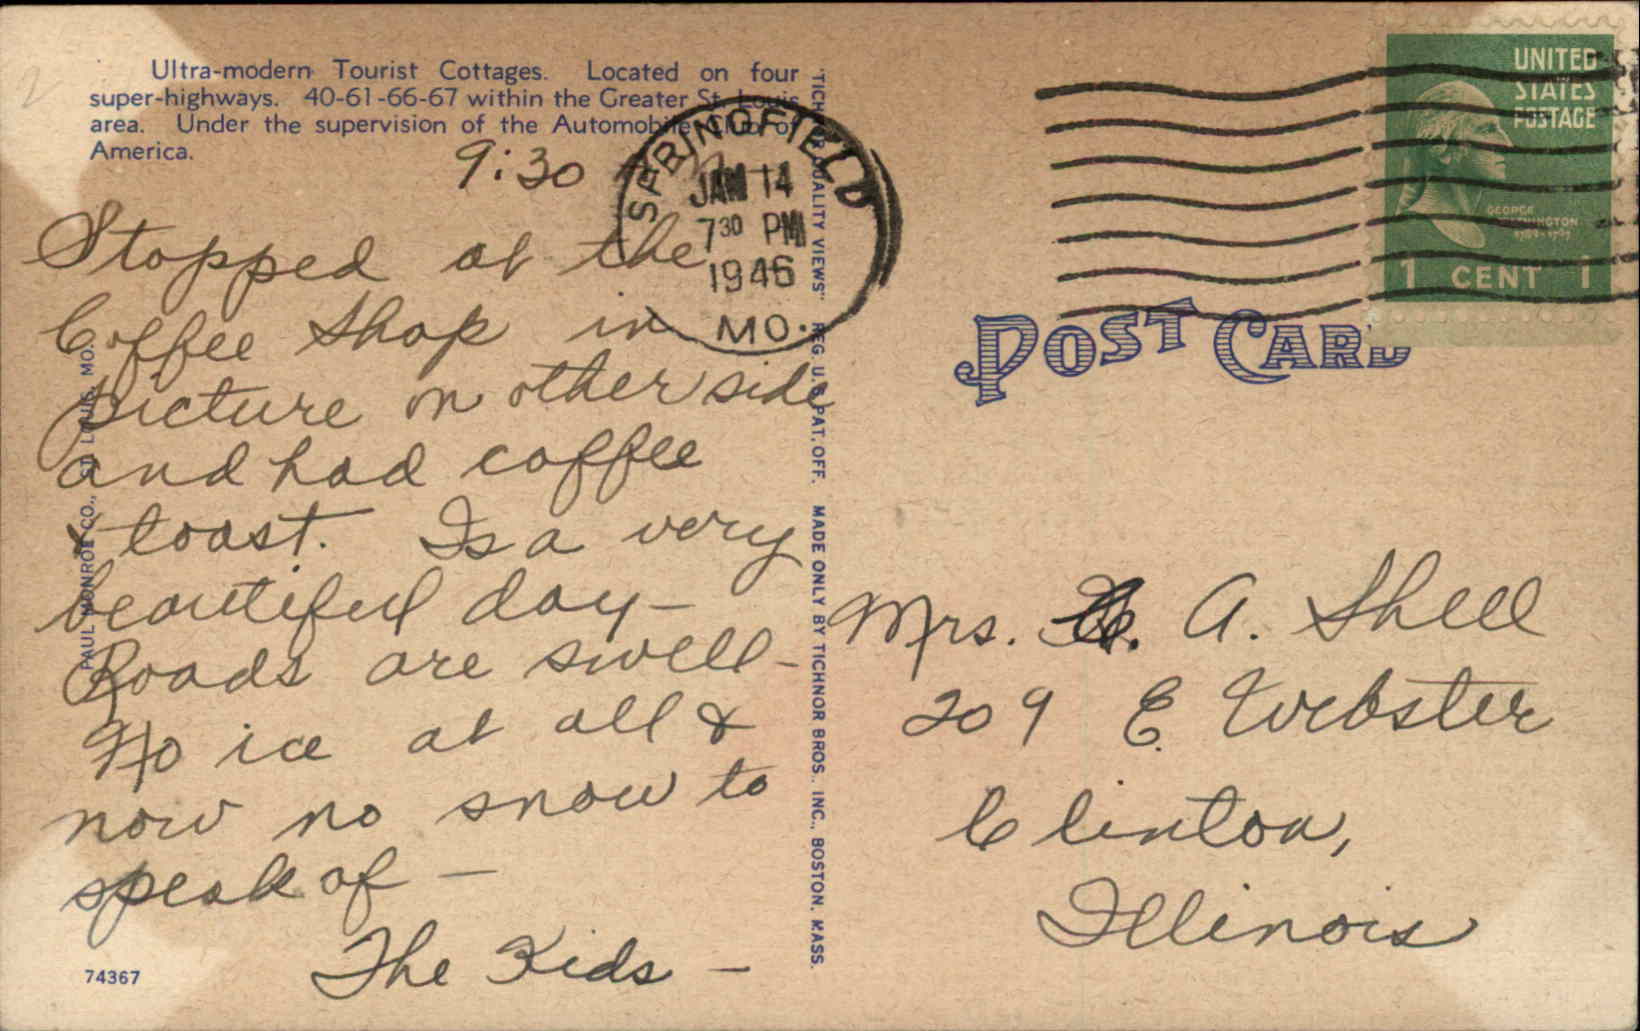 Ultra-modern Tourist Cottages. Located on four
super-highways. 40-61-66-67 within the Greater St. Louis
area. Under the supervision of the Automobile Club of
America.
9:30
Stopped at the
Coffee Shop in
picture on other side
and had coffee
& toast. Is a very
beautiful day -
Roads are swell -
No ice at all &
now no snow to
speak of -
The Kids -
74367
PAUL MONROE CO., ST. LOUIS, MO.
SPRINGFIELD
JAN 14
730 PM
1946
MO.
QUALITY VIEWS" REG. U.S. PAT. OFF. MADE ONLY BY TICHNOR BROS., INC., BOSTON, MASS.
UNITED
STATES
POSTAGE
GEORGE
WASHINGTON
1789-1797
1 CENT 1
POST CARD
Mrs. A. Shell
209 E. Webster
Clinton,
Illinois